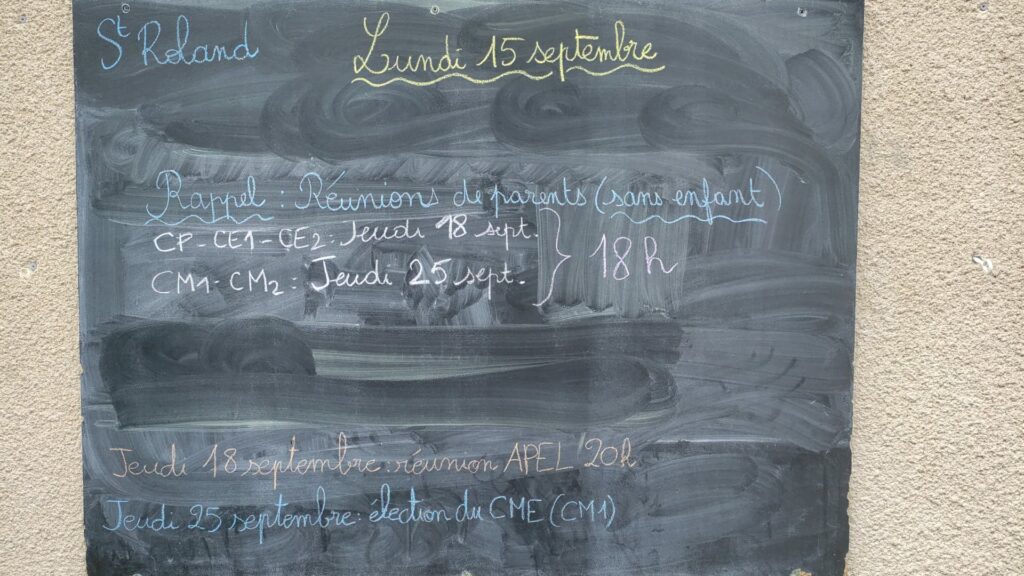 St Roland
Lundi 15 septembre
Rappel : Réunions de parents (sans enfant)
CP-CE1-CE2 : Jeudi 18 sept.
CM1-CM2 : Jeudi 25 sept.
} 18h
Jeudi 18 septembre : réunion APEL 20h
Jeudi 25 septembre : élection du CME (CM1)